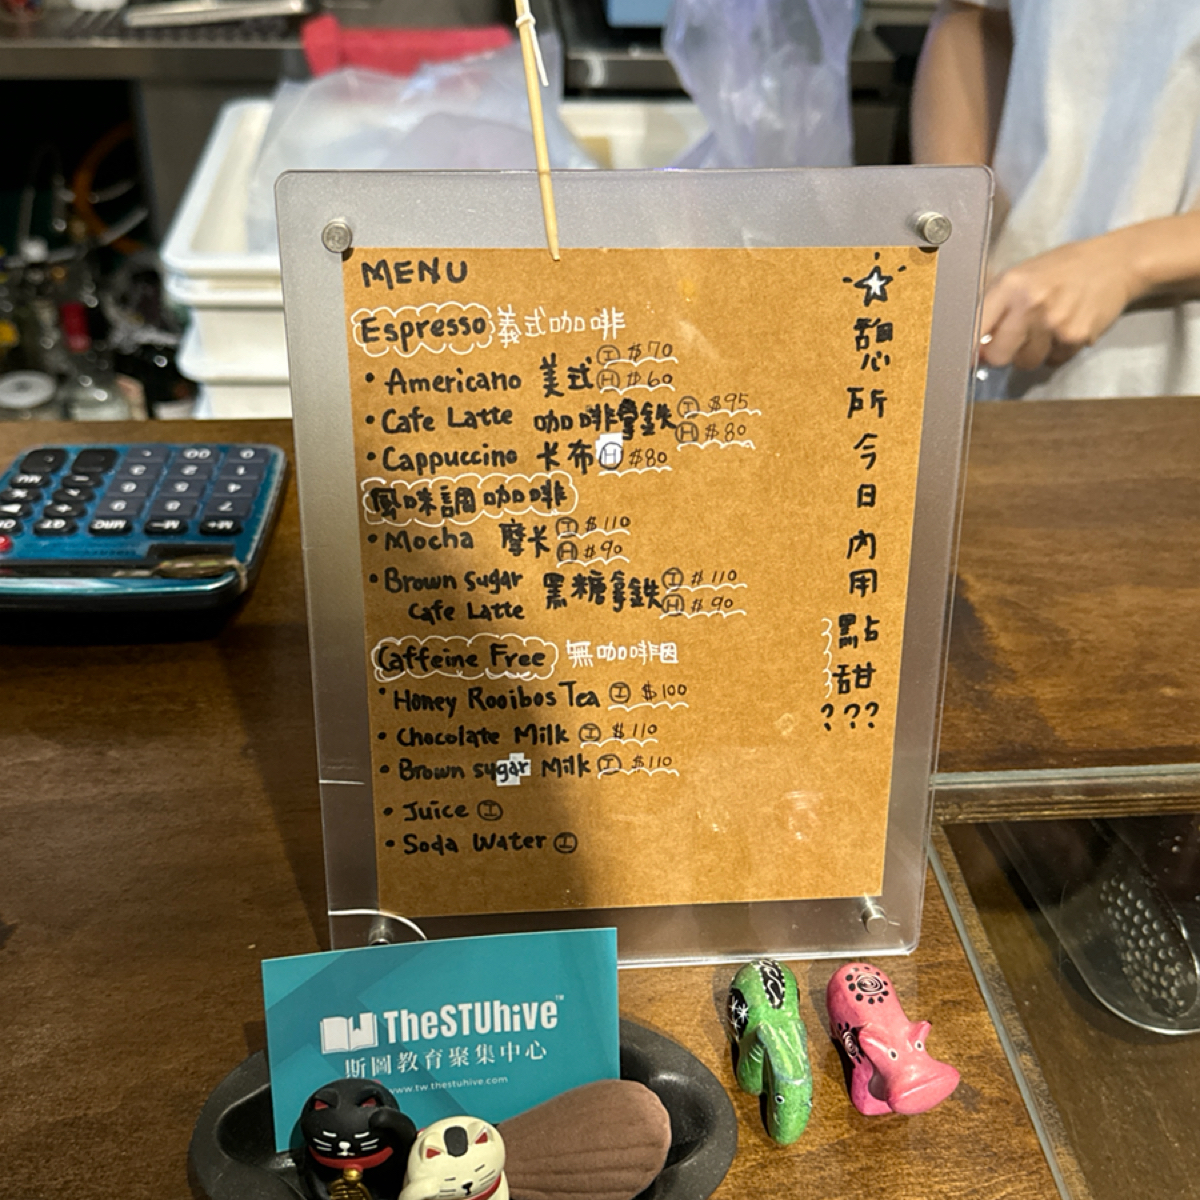 MENU
Espresso 義式咖啡
• Americano 美式 Ⓘ $70
Ⓗ $60
• Cafe Latte 咖啡拿鉄 Ⓘ $95
Ⓗ $80
• Cappuccino 卡布 Ⓗ $80
風味調咖啡
• Mocha 摩卡 Ⓘ $110
Ⓗ $90
• Brown sugar Cafe Latte 黑糖拿鉄 Ⓘ $110
Ⓗ $90
Caffeine Free 無咖啡因
• Honey Rooibos Tea Ⓘ $100
• Chocolate Milk Ⓘ $110
• Brown sugar Milk Ⓘ $110
• Juice Ⓘ
• Soda Water Ⓘ
憩所今日內用點甜???
TheSTUhive™
斯圖教育聚集中心
www.tw.thestuhive.com